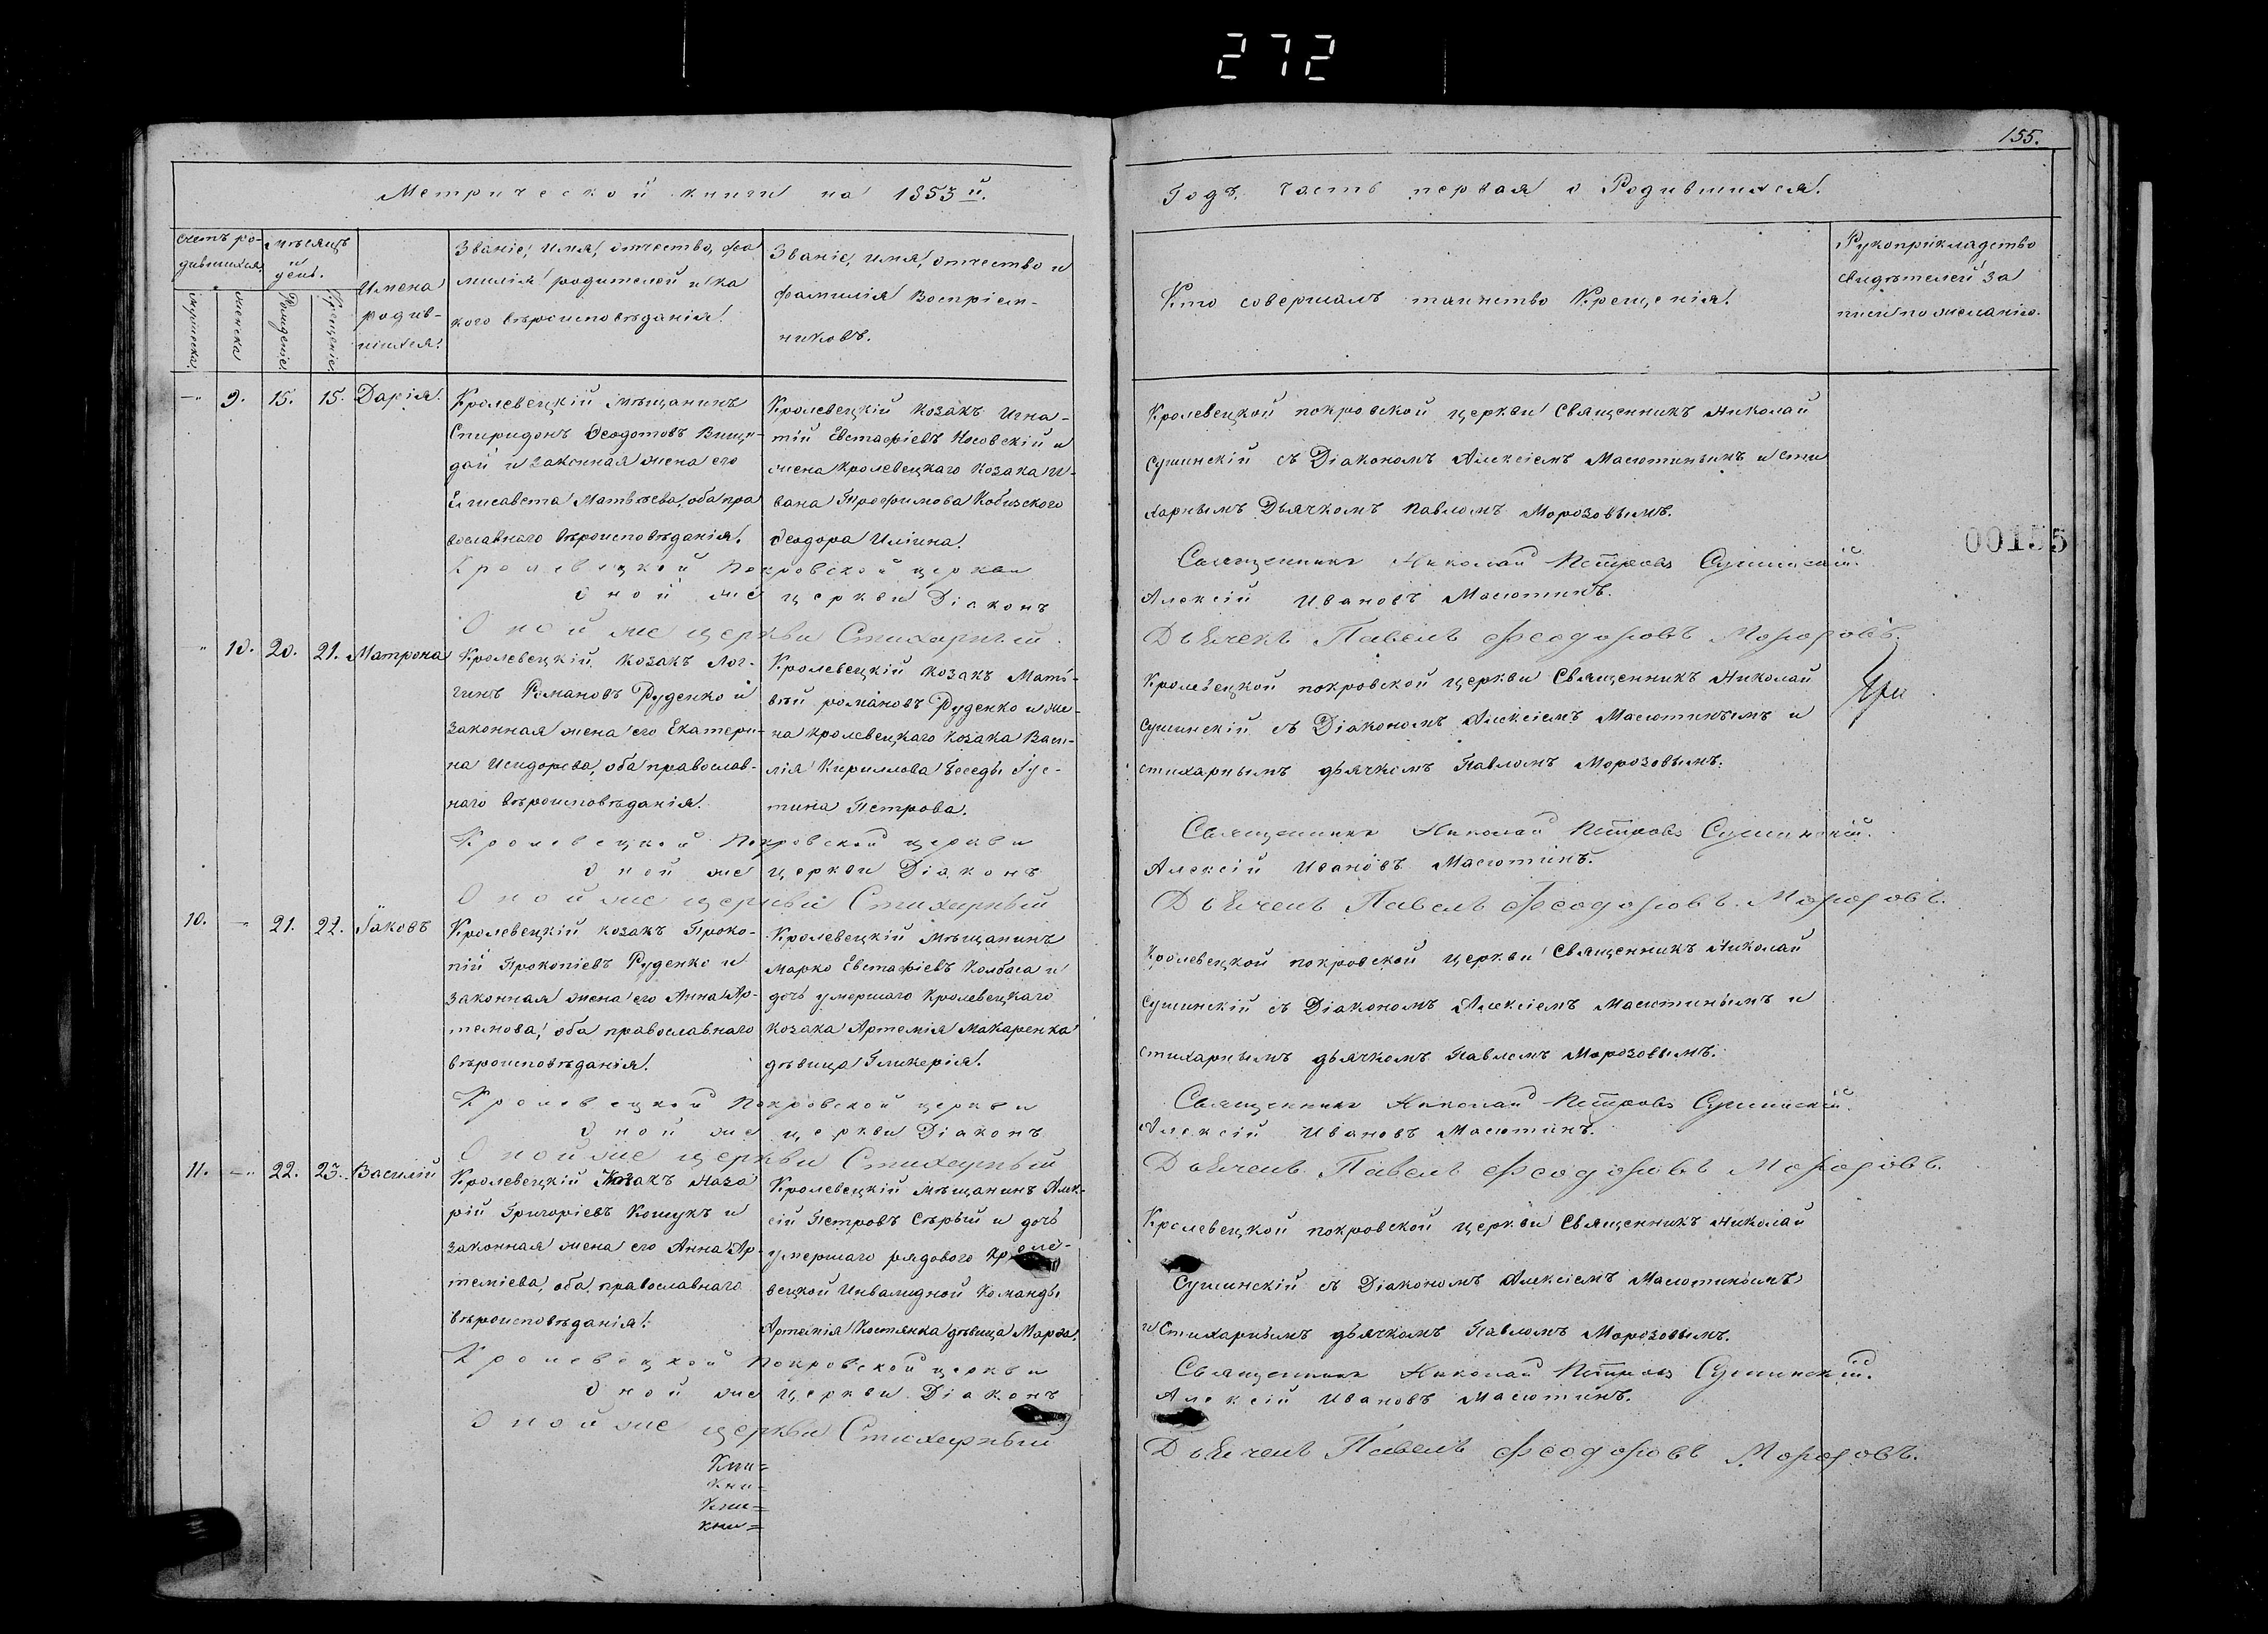 272
155.
Метрической книги на 1853й.
Годъ, часть первая о Родившихся.
счетъ ро-
дившихся
мѣсяцъ
и
день.
мужеска
женска
Рожденіе
Крещеніе
Имена
родив-
шихся.
Званіе, имя, отчество, фа
милія родителей и ка
кого вѣроисповѣданія.
Званіе, имя, отчество и
фамилія Воспріем-
никовъ.
Кто совершалъ таинство Крещенія.
Рукоприкладство
свидѣтелей за
писи по желанію.
9. 15. 15. Дарія.
Кролевецкій мѣщанинъ
Спиридонъ Ѳеодотовъ
и законная жена его
Елисавета Матвѣева, оба пра
вославнаго вѣроисповѣданія.
Кролевецкій козакъ Игна-
тій Евстафіевъ и
жена кролевецкаго козака И-
вана Трофимова Кобизского
Ѳеодора Иліина.
Кролевецкой покровской церкви Священникъ Николай
Сушинскій съ Діакономъ Алексіемъ Масютинымъ и сти
харнымъ Дьячкомъ Павломъ Морозовымъ.
00155
Кролевецкой Покровской церкви Священникъ Николай Петровъ Сушинскій.
Оной же церкви Діаконъ Алексій Ивановъ Масютинъ.
Оной же церкви Стихарный Дьячекъ Павелъ Феодоровъ Морозовъ.
10. 20. 21. Матрона
Кролевецкій козакъ Лог-
гинъ Романовъ Руденко и
законная жена его Екатери-
на Исидорова, оба православ-
наго вѣроисповѣданія.
Кролевецкій козакъ Мат-
вѣй романовъ Руденко и же-
на кролевецкаго козака Васи-
лія Кириллова Беседы Іус-
тина Петрова.
Кролевецкой покровской церкви Священникъ Николай
Сушинскій съ Діакономъ Алексіемъ Масютинымъ и
стихарнымъ дьячкомъ Павломъ Морозовымъ.
Кролевецкой Покровской церкви Священникъ Николай Петровъ Сушинскій.
Оной же церкви Діаконъ Алексій Ивановъ Масютинъ.
Оной же церкви Стихарный Дьячекъ Павелъ Феодоровъ Морозовъ.
10. — 21. 22. Іаковъ
Кролевецкій козакъ Проко-
пій Прокопіевъ Руденко и
законная жена его Анна Ар-
темова, оба православнаго
вѣроисповѣданія.
Кролевецкій мѣщанинъ
Марко Евстафіевъ Колбаса и
дочь умершаго кролевецкаго
козака Артемія Макаренка
дѣвица Гликерія.
Кролевецкой покровской церкви Священникъ Николай
Сушинскій съ Діакономъ Алексіемъ Масютинымъ и
стихарнымъ дьячкомъ Павломъ Морозовымъ.
Кролевецкой Покровской церкви Священникъ Николай Петровъ Сушинскій.
Оной же церкви Діаконъ Алексій Ивановъ Масютинъ.
Оной же церкви Стихарный Дьячекъ Павелъ Феодоровъ Морозовъ.
11. — 22. 23. Василій
Кролевецкій Козакъ Наза
рій Григоріевъ Кошукъ и
законная жена его Анна Ар-
теміева, оба православнаго
вѣроисповѣданія.
Кролевецкій мѣщанинъ Алек-
сій Петровъ Сѣрый и дочь
умершаго рядового кроле-
вецкой Инвалидной Команды
Артемія Костянка дѣвица Марѳа.
Кролевецкой покровской церкви Священникъ Николай
Сушинскій съ Діакономъ Алексіемъ Масютинымъ
и Стихарнымъ дьячкомъ Павломъ Морозовымъ.
Кролевецкой Покровской церкви Священникъ Николай Петровъ Сушинскій.
Оной же церкви Діаконъ Алексій Ивановъ Масютинъ.
Оной же церкви Стихарный Дьячекъ Павелъ Феодоровъ Морозовъ.
Кни=
Кни=
Кни=
кни=